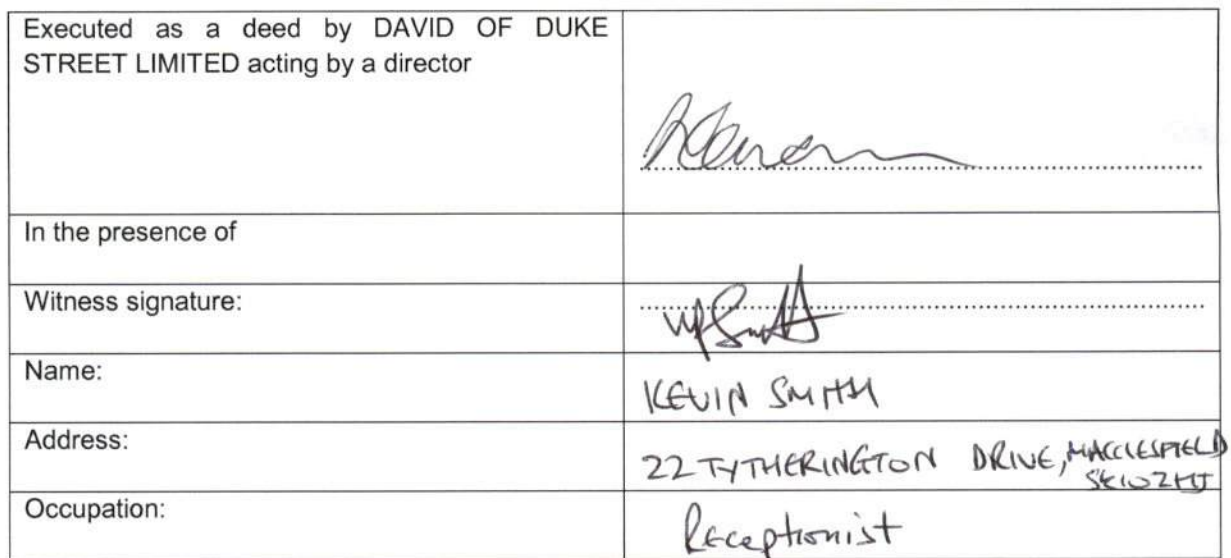 Executed as a deed by DAVID OF DUKE
STREET LIMITED acting by a director
In the presence of
Witness signature:
Name:
KEVIN SMITH
Address:
22 TYTHERINGTON DRIVE, MACCLESFIELD
SK10 2HJ
Occupation:
Receptionist